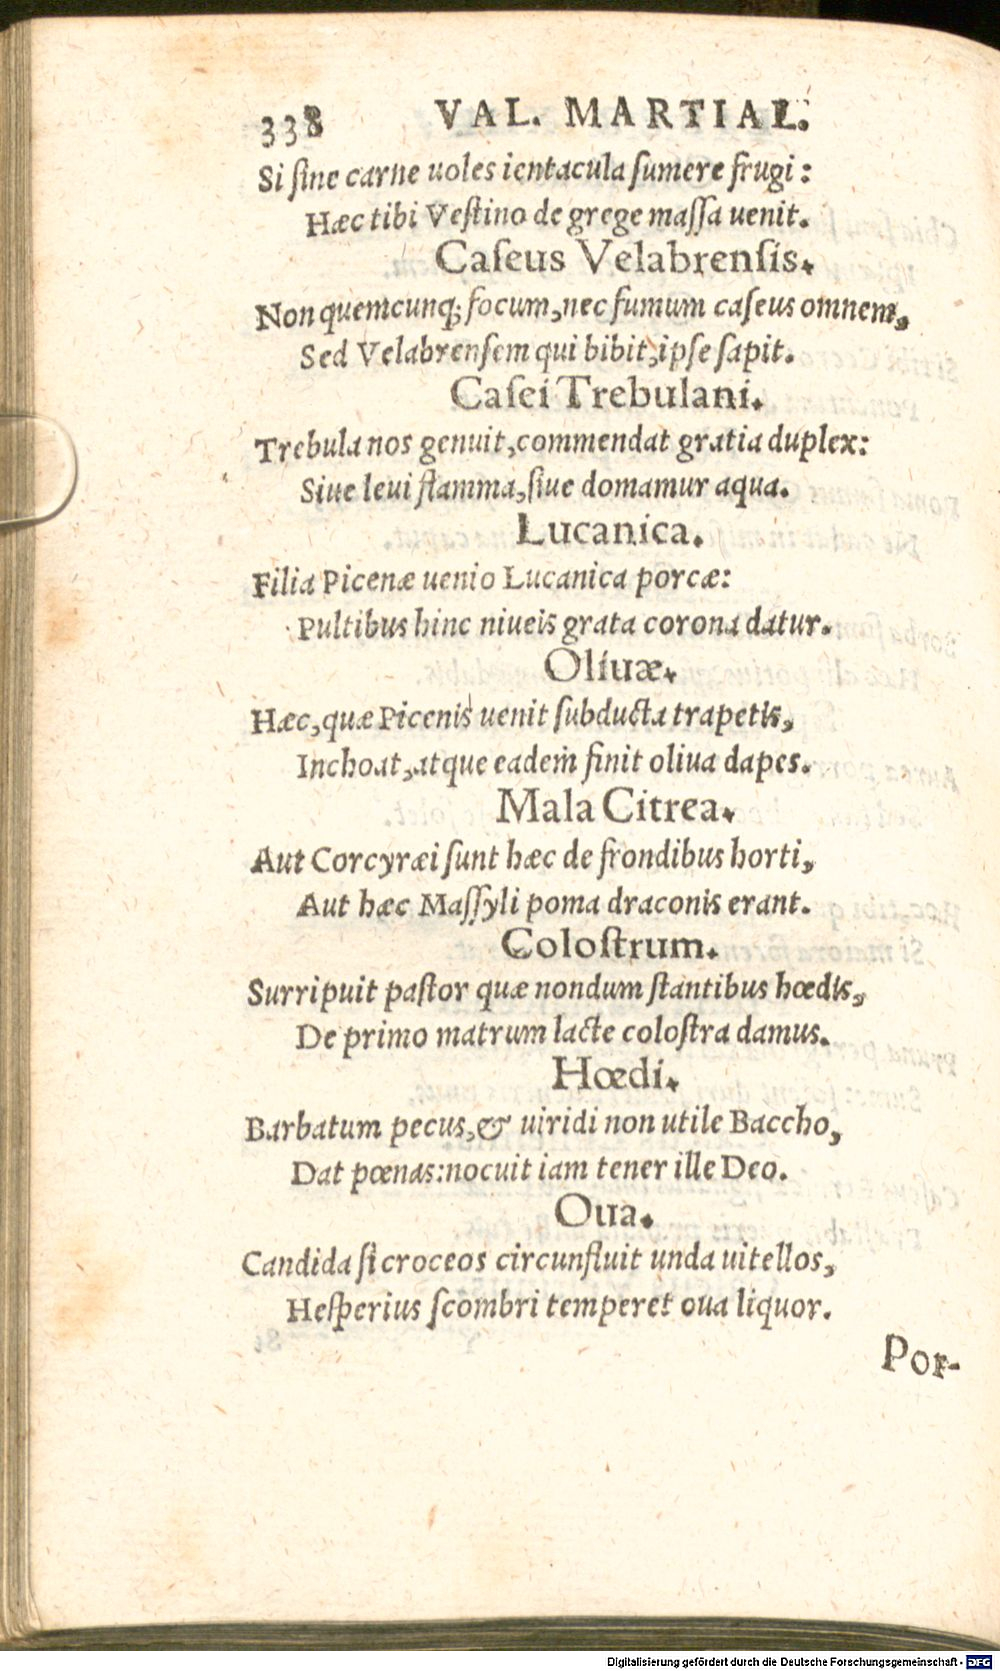 338 VAL. MARTIAL.
Si sine carne uoles ientacula sumere frugi:
Hæc tibi Vestino de grege massa uenit.
Caseus Velabrensis.
Non quemcunq; focum, nec fumum caseus omnem,
Sed Velabrensem qui bibit, ipse sapit.
Casei Trebulani.
Trebula nos genuit, commendat gratia duplex:
Siue leui flamma, siue domamur aqua.
Lucanica.
Filia Picenæ uenio Lucanica porcæ:
Pultibus hinc niueis grata corona datur.
Oliuæ.
Hæc, quæ Picenis uenit subducta trapetis,
Inchoat, atque eadem finit oliua dapes.
Mala Citrea.
Aut Corcyræi sunt hæc de frondibus horti,
Aut hæc Massyli poma draconis erant.
Colostrum.
Surripuit pastor quæ nondum stantibus hœdis,
De primo matrum lacte colostra damus.
Hœdi.
Barbatum pecus, & uiridi non utile Baccho,
Dat pœnas: nocuit iam tener ille Deo.
Oua.
Candida si croceos circunfluit unda uitellos,
Hesperius scombri temperet oua liquor.
Por-
Digitalisierung gefördert durch die Deutsche Forschungsgemeinschaft - DFG